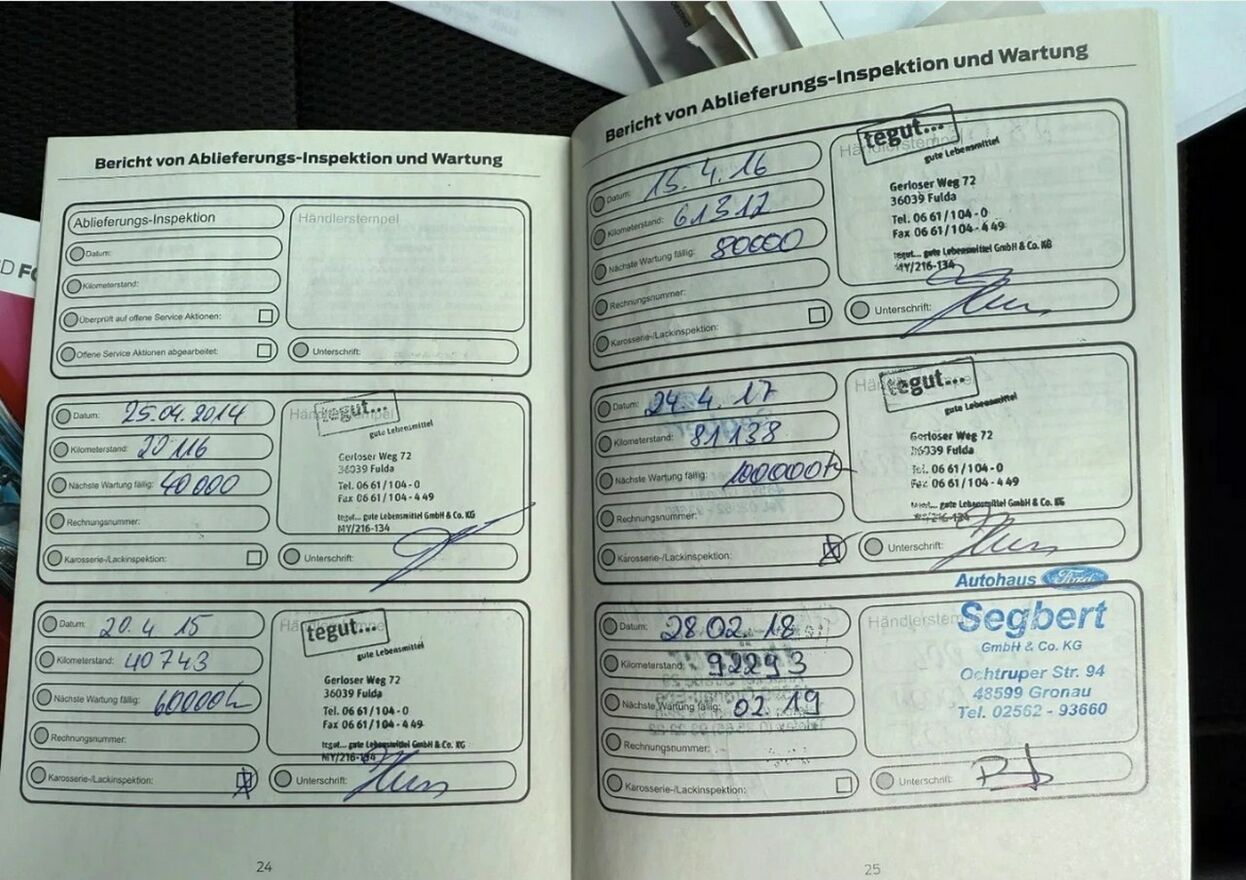 D FO
Bericht von Ablieferungs-Inspektion und Wartung
Ablieferungs-Inspektion
Datum:
Kilometerstand:
Überprüft auf offene Service Aktionen:
Offene Service Aktionen abgearbeitet:
Händlerstempel
Unterschrift:
Datum: 25.04.2014
Kilometerstand: 20116
Nächste Wartung fällig: 40000
Rechnungsnummer:
Karosserie-/Lackinspektion:
Händlerstempel
tegut...
gute Lebensmittel
Gerloser Weg 72
36039 Fulda
Tel. 06 61 / 104 - 0
Fax 06 61 / 104 - 4 49
tegut... gute Lebensmittel GmbH & Co. KG
MY/216-134
Unterschrift:
Datum: 20.4 15
Kilometerstand: 40743
Nächste Wartung fällig: 60000
Rechnungsnummer:
Karosserie-/Lackinspektion:
Händlerstempel
tegut...
gute Lebensmittel
Gerloser Weg 72
36039 Fulda
Tel. 06 61 / 104 - 0
Fax 06 61 / 104 - 4 49
tegut... gute Lebensmittel GmbH & Co. KG
MY/216-134
Unterschrift:
24
Bericht von Ablieferungs-Inspektion und Wartung
Datum: 15.4.16
Kilometerstand: 61312
Nächste Wartung fällig: 80000
Rechnungsnummer:
Karosserie-/Lackinspektion:
Händlerstempel
tegut...
gute Lebensmittel
Gerloser Weg 72
36039 Fulda
Tel. 06 61 / 104 - 0
Fax 06 61 / 104 - 4 49
tegut... gute Lebensmittel GmbH & Co. KG
MY/216-134
Unterschrift:
Datum: 24.4.17
Kilometerstand: 81138
Nächste Wartung fällig: 100000
Rechnungsnummer:
Karosserie-/Lackinspektion:
Händlerstempel
tegut...
gute Lebensmittel
Gerloser Weg 72
36039 Fulda
Tel. 06 61 / 104 - 0
Fax 06 61 / 104 - 4 49
tegut... gute Lebensmittel GmbH & Co. KG
MY/216-134
Unterschrift:
Datum: 28.02.18
Kilometerstand: 92293
Nächste Wartung fällig: 02 19
Rechnungsnummer:
Karosserie-/Lackinspektion:
Händlerstempel
Autohaus Ford
Segbert
GmbH & Co. KG
Ochtruper Str. 94
48599 Gronau
Tel. 02562 - 93660
Unterschrift:
25